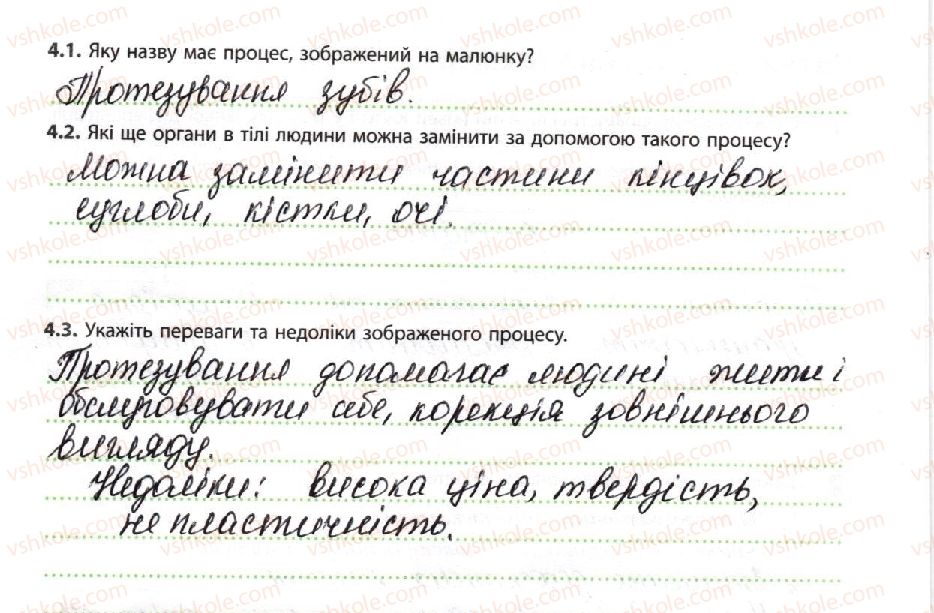 4.1. Яку назву має процес, зображений на малюнку?
Протезування зубів.
4.2. Які ще органи в тілі людини можна замінити за допомогою такого процесу?
Можна замінити частини кінцівок,
суглоби, кістки, очі.
4.3. Укажіть переваги та недоліки зображеного процесу.
Протезування допомагає людині жити і
обслуговувати себе, корекція зовнішнього
вигляду.
Недоліки: висока ціна, твердість,
не пластичність.